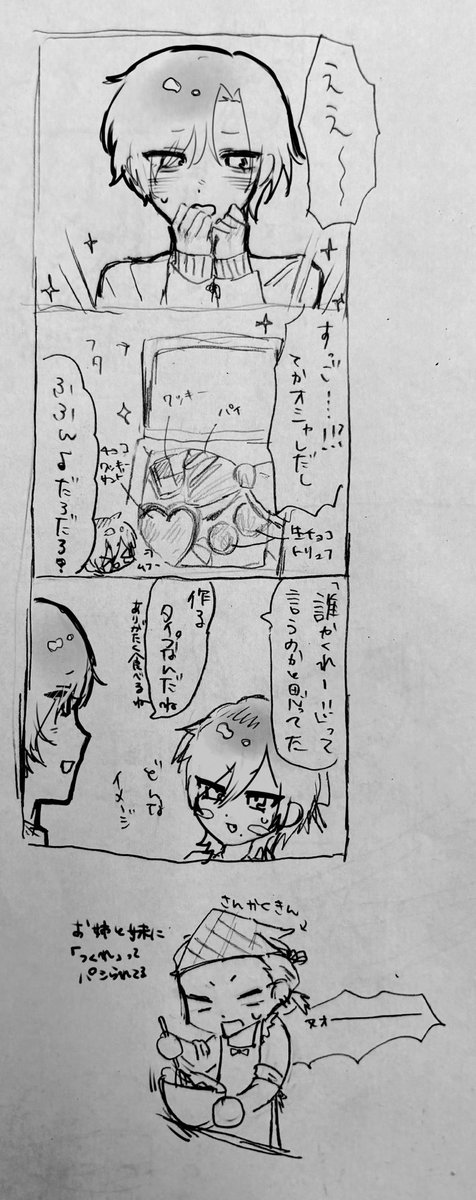 ええ〜〜
すっご…!!!?
てかオシャレだし
フタ→
クッキー
パイ
チョコ
クッキー
サンド
生チョコ
トリュフ
ふふんよだろだろ？
ムフー
「誰かくれー!!」って
言うのかと思ってた
作る
タイプなんだね
ありがたく食べるね
どんな
イメージ
さんかくきん
お姉と妹に
「つくれ」って
パシられてる
ヌオー